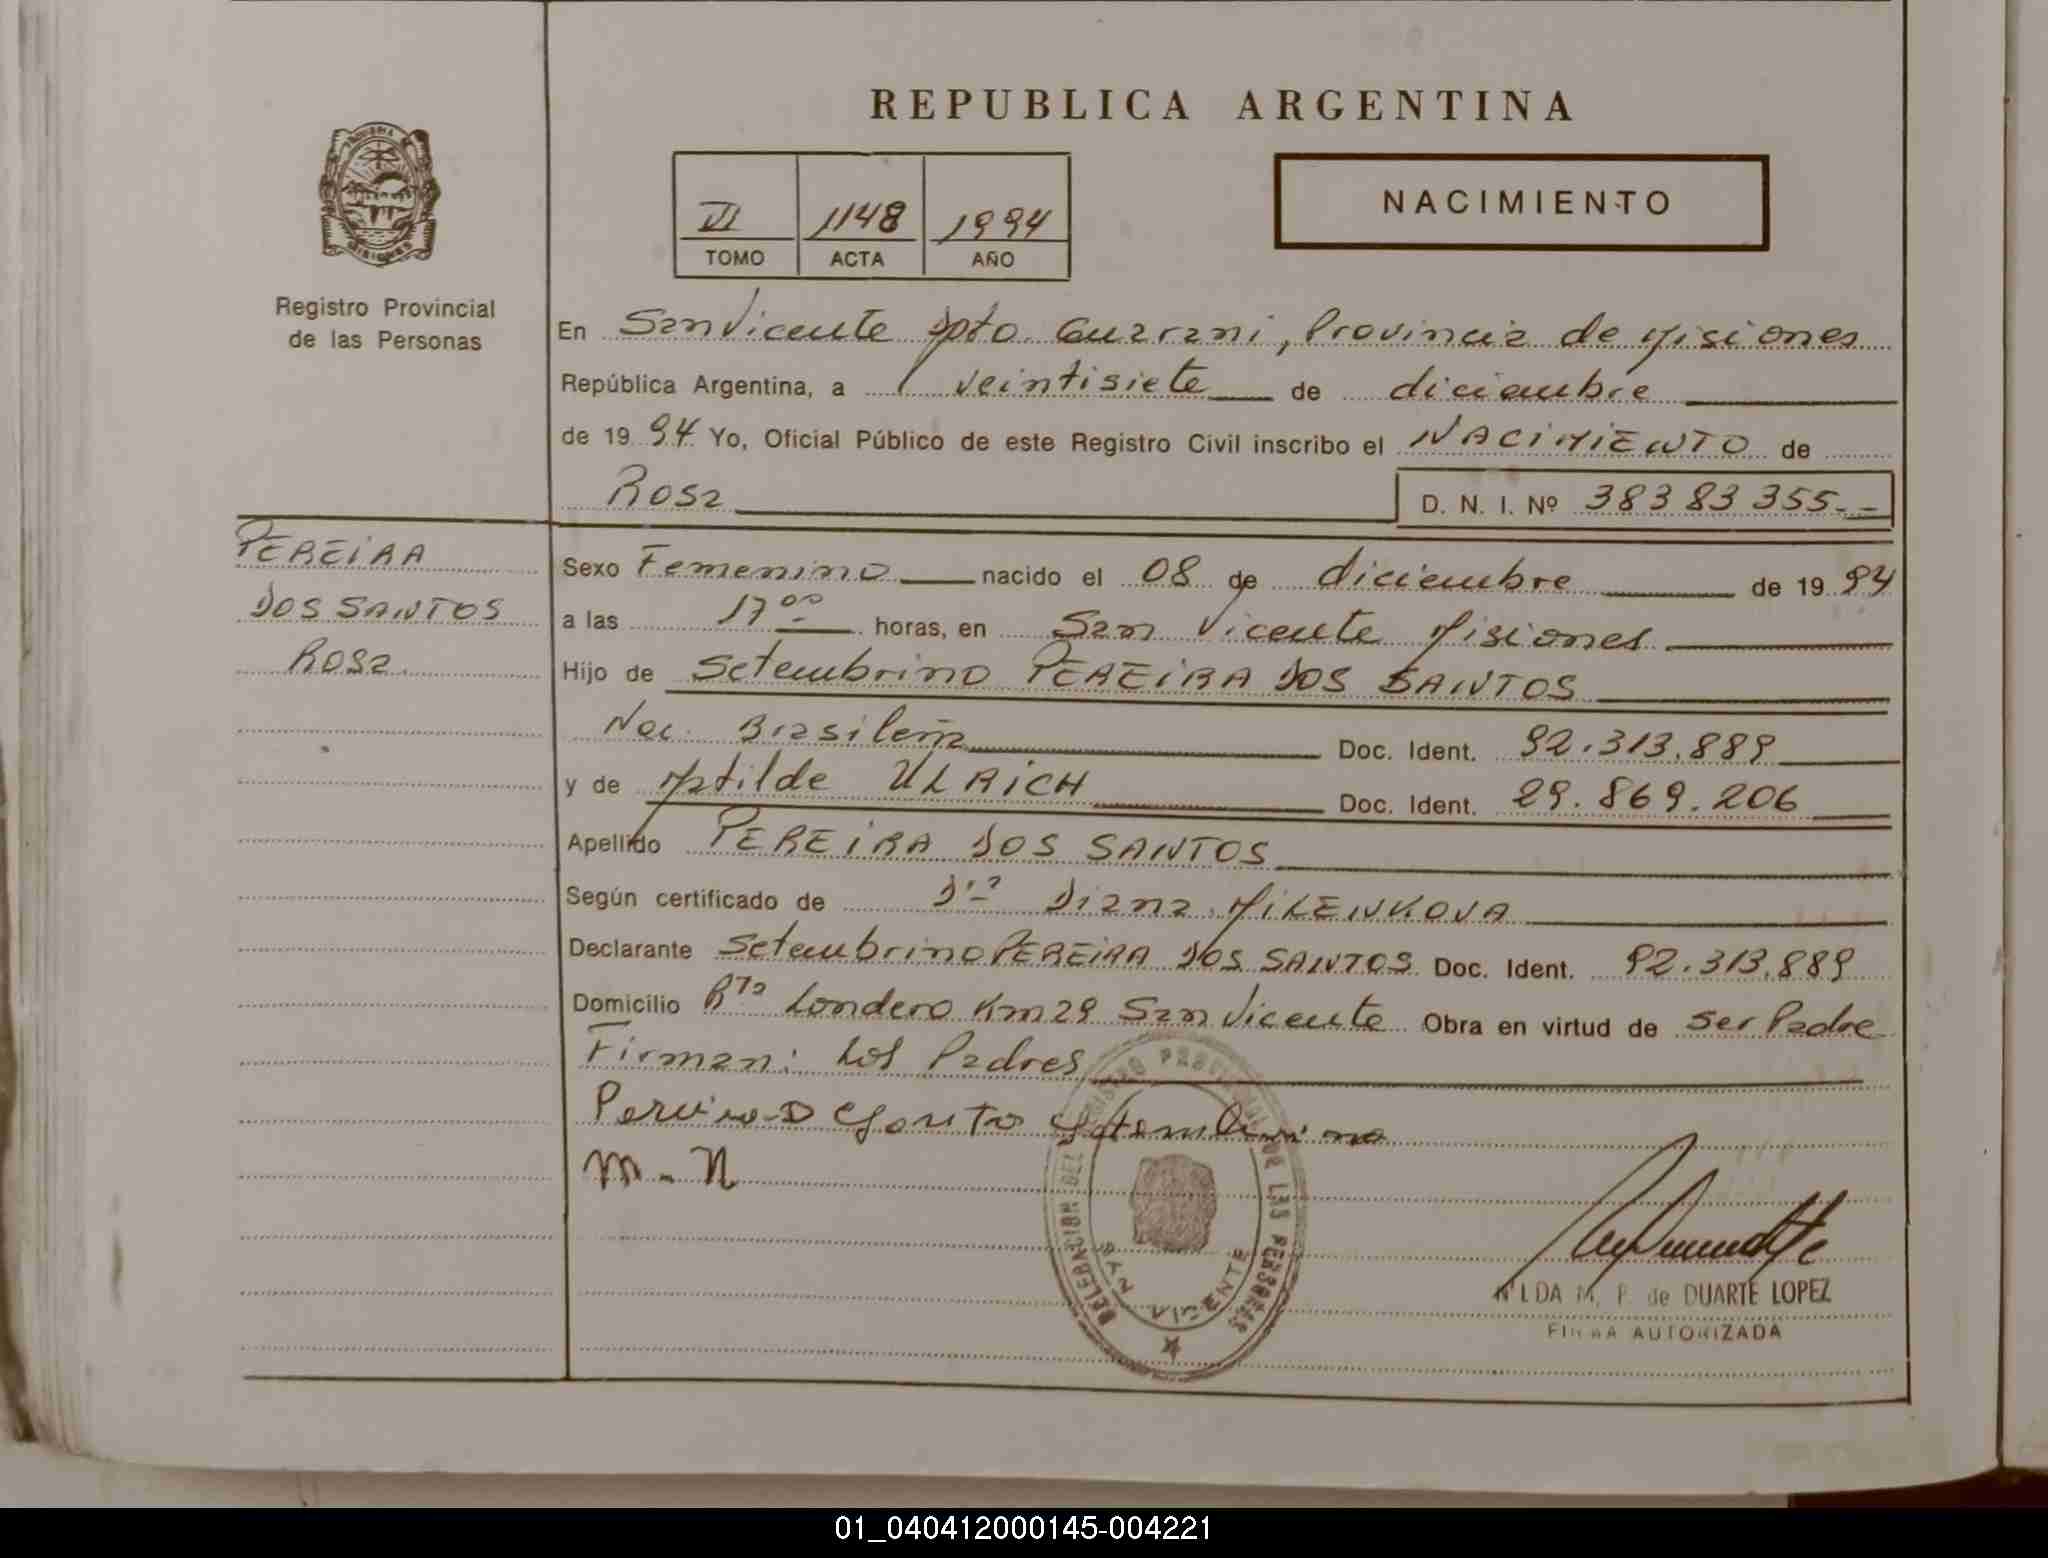 REPUBLICA ARGENTINA
VI 1148 1994
TOMO ACTA AÑO
NACIMIENTO
PROVINCIA
MISIONES
Registro Provincial
de las Personas
En San Vicente Dpto. Guarani, Provincia de Misiones
República Argentina, a veintisiete de diciembre
de 19 94 Yo, Oficial Público de este Registro Civil inscribo el NACIMIENTO de
Rosa D. N. I. Nº 38383355.-
PEREIRA
DOS SANTOS
Rosa.
Sexo Femenino nacido el 08 de diciembre de 19 94
a las 17 00 horas, en San Vicente Misiones
Hijo de Setembrino PEREIRA DOS SANTOS
Nac. Brasileña Doc. Ident. 92.313.889
y de Matilde ULRICH Doc. Ident. 29.869.206
Apellido PEREIRA DOS SANTOS
Según certificado de Dra Diana MILENKOVA
Declarante Setembrino PEREIRA DOS SANTOS Doc. Ident. 92.313.889
Domicilio Rta Londero Km 29 San Vicente Obra en virtud de ser Padre
Firman: Los Padres
M-N
DELEGACION DEL REGISTRO PROVINCIAL DE LAS PERSONAS
SAN VICENTE
NILDA M. P. de DUARTE LOPEZ
FIRMA AUTORIZADA
01_040412000145-004221